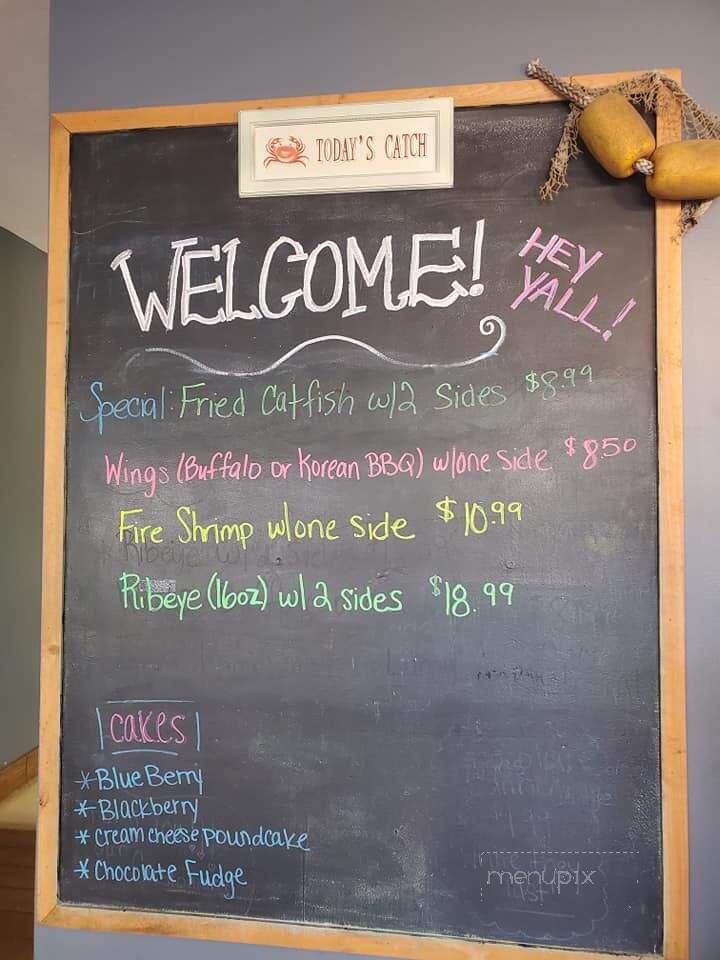 TODAY'S CATCH
WELCOME!
HEY
YALL!
Special: Fried Catfish w/2 Sides $8.99
Wings (Buffalo or Korean BBQ) w/one side $8.50
Fire Shrimp w/one side $10.99
Ribeye (16oz) w/ 2 sides $18.99
cakes
* Blue Berry
* Blackberry
* cream cheese poundcake
* Chocolate Fudge
menupix